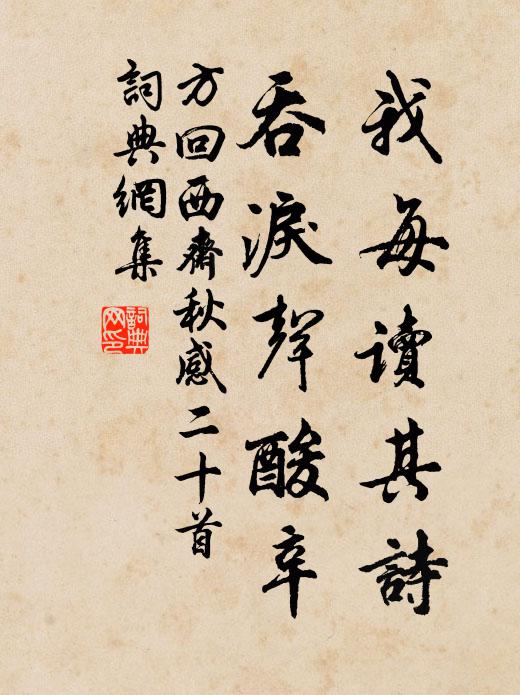 我每讀其詩
吞淚聲酸辛
方回西齋秋感二十首
詞典網集
詞典網印